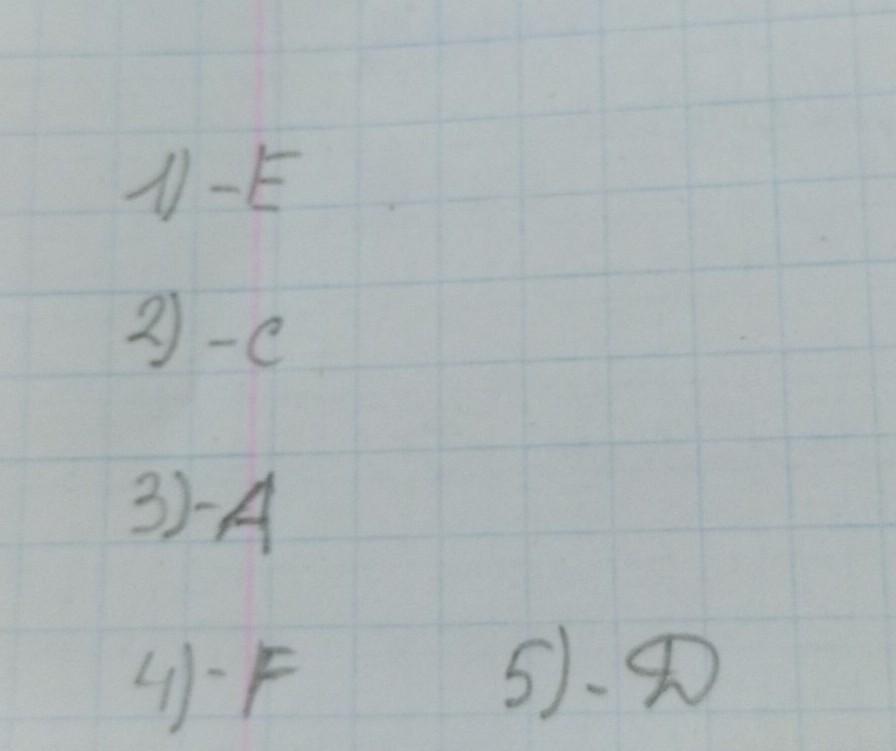 1) - E
2) - C
3) - A
4) - F 5) - D